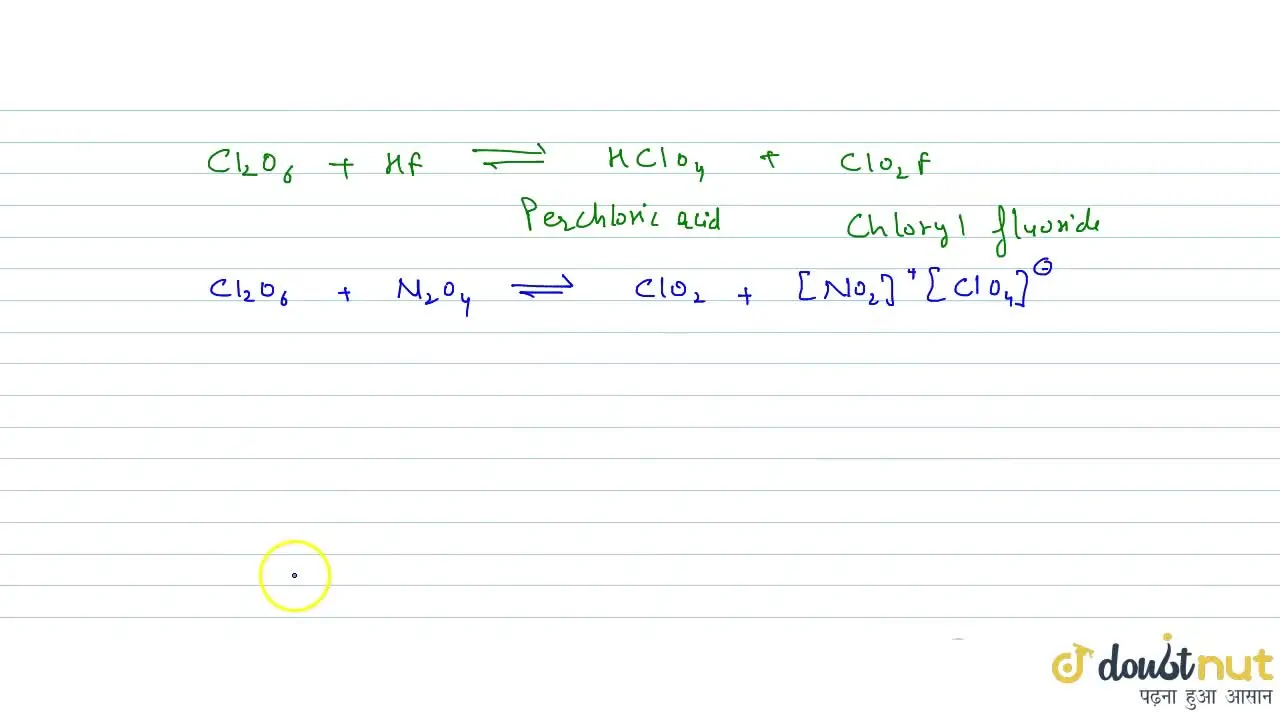 Cl₂O₆ + HF ⇌ HClO₄ + ClO₂F
Perchloric acid Chloryl fluoride
Cl₂O₆ + N₂O₄ ⇌ ClO₂ + [NO₂]⁺[ClO₄]⊖
doubtnut
पढ़ना हुआ आसान